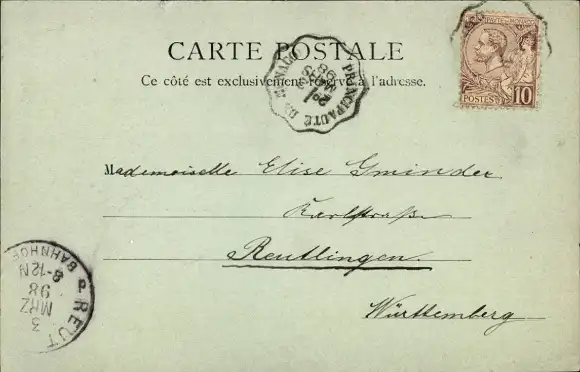 CARTE POSTALE
Ce côté est exclusivement réservé à l'adresse.
PRINCIPAUTÉ DE MONACO
MARS
98
POSTES 10
Mademoiselle Elise Gminder
Karlstraße
Reutlingen
Württemberg
REUT
3
MRZ
98
8-12N
BAHNHOF